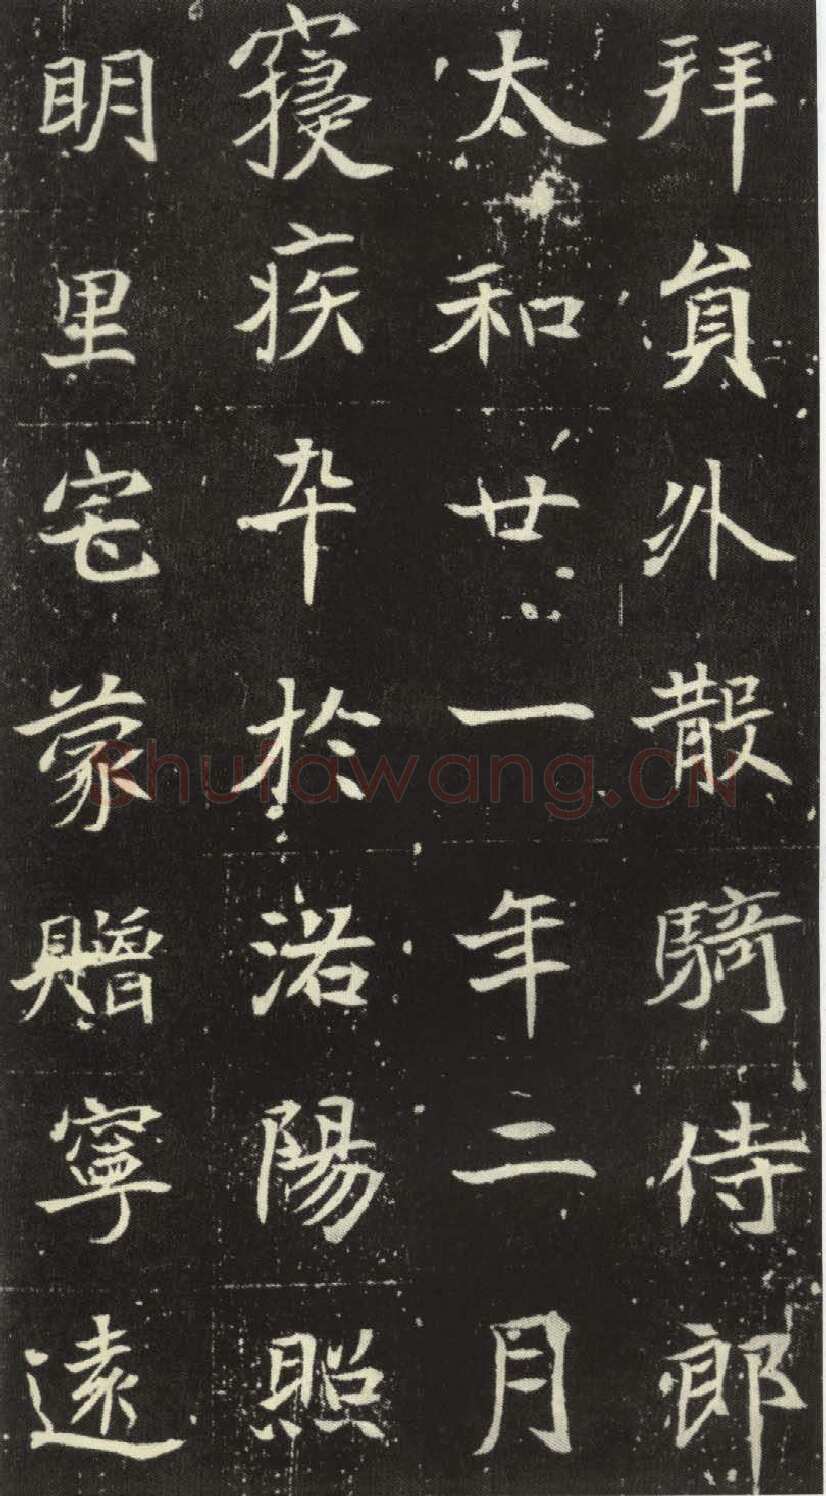 拜員外散騎侍郎
太和廿一年二月
寑疾卒於洛陽照
明里宅蒙贈寧遠
Shufawang.CN